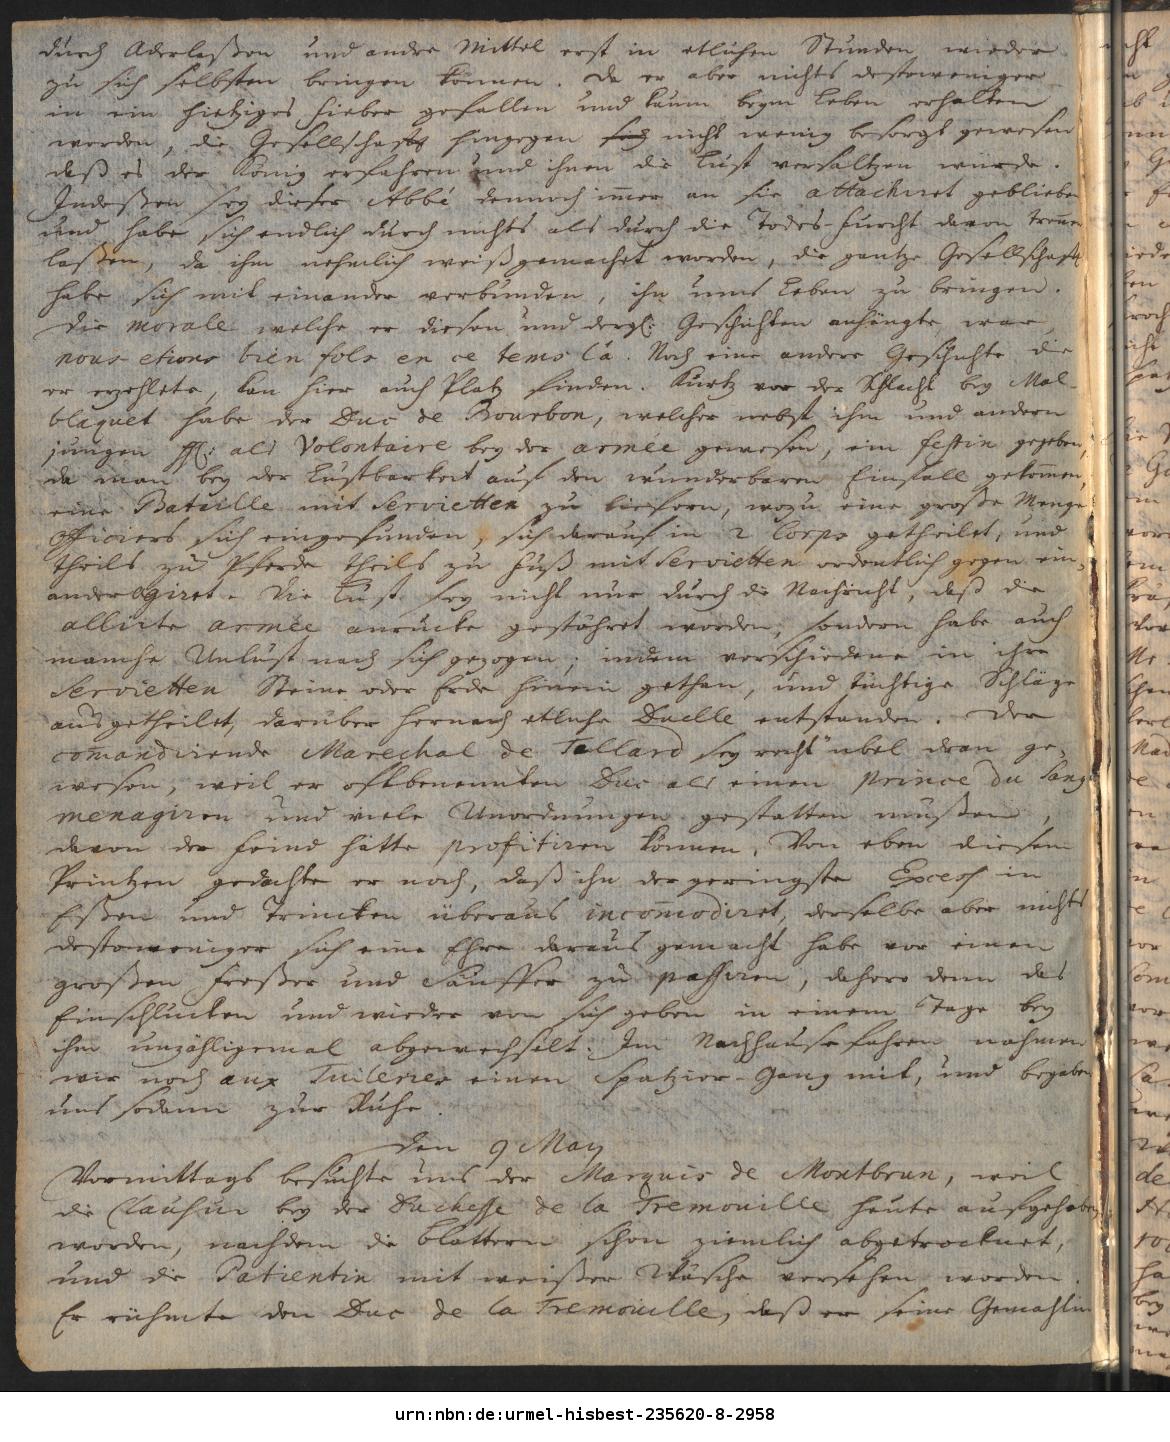 durch Aderlaßen und andre Mittel erst in etlichen Stunden wieder
zu sich selbsten bringen können. Da er aber nichts destoweniger
in ein hietziges Fieber gefallen und kaum beym Leben erhalten
worden, die Gesellschafft hingegen sich nicht wenig besorgt gewesen
daß es der König erfahren und ihnen die Lust versaltzen würde.
Indeßen sey dieser Abbé dennoch im̅er an sie attachiret geblieben
und habe sich endlich durch nichts als durch die Todes-Furcht davon trennen
laßen, da ihm nehmlich weißgemachet worden, die gantze Gesellschafft
habe sich mit einander verbunden, ihn ums Leben zu bringen.
Die morale welche er diesen und dergl: Geschichten anhängte, war,
nous etions bien fols en ce tems la. Noch eine andere Geschichte die
er erzehlete, kan hier auch Platz finden. Kurtz vor der Schlacht bey Mal-
blaquet habe der Duc de Bourbon, welcher nebst ihm und andern
jungen als Volontaire bey der armée gewesen, ein festin gegeben,
da man bey der Lustbarkeit auf den wunderbaren Einfall gekom̅en,
eine Bataille mit Servietten zu liefern, wozu eine große Menge
Officiers sich eingefunden, sich darauf in 2 Corps getheilet, und
theils zu Pferde theils zu Fuß mit Servietten ordentlich gegen ein-
ander agiret. Die Lust sey nicht nur durch die Nachricht, daß die
allirte armée anrücke gestöhret worden, sondern habe auch
manche Unlust nach sich gezogen, indem verschiedene in ihre
Servietten Steine oder Erde hinein gethan, und tüchtige Schläge
ausgetheilet, darüber hernach etliche Duelle entstanden. Der
com̅andirende Marechal de Tallard sey recht übel dran ge-
wesen, weil er oftbenennten Duc als einen prince du sang
menagiren und viele Unordnungen gestatten mußen,
davon der Feind hätte profitiren können. Von eben diesem
Printzen gedachte er noch, daß ihn der geringste Excess in
Eßen und Trincken überaus incom̅odiret, derselbe aber nichts
destoweniger sich eine Ehre daraus gemacht habe vor einen
großen Freßer und Säuffer zu passiren, dahero denn das
Einschlucken und wieder von sich geben in einem Tage bey
ihm unzähligemal abgewechselt. Im Nachhausefahren nahmen
wir noch aux Tuileries einen Spatzier-Gang mit, und begaben
uns sodann zur Ruhe.
Den 9 May
Vormittags besuchte uns der Marquis de Montbrun, weil
die Clausur bey der Duchesse de la Tremouille heute aufgehoben
worden, nachdem die Blattern schon ziemlich abgetrocknet,
und die Patientin mit weißer Wäsche versehen worden.
Er rühmte den Duc de la Tremouille, daß er seine Gemahlin
urn:nbn:de:urmel-hisbest-235620-8-2958